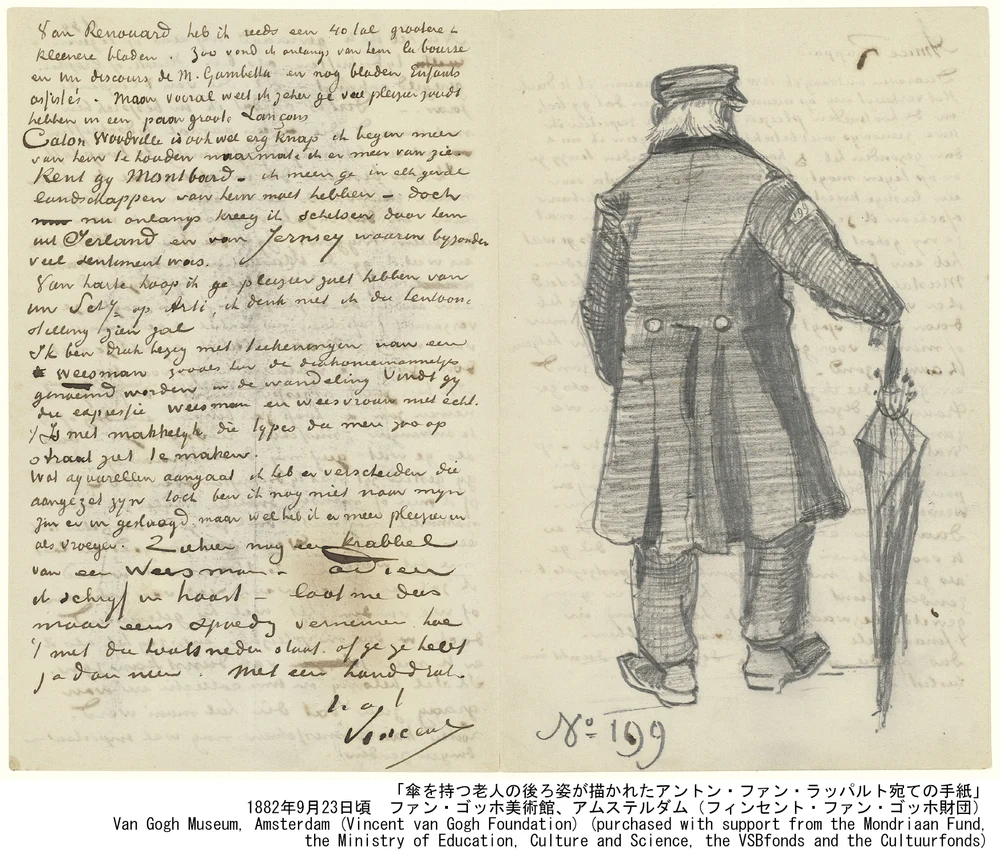 Van Renouard heb ik reeds een 40 tal grootere &
kleinere bladen. Zoo vond ik onlangs van hem la bourse
en un discours de M. Gambetta en nog bladen Enfants
assistés. Maar vooral weet ik zeker ge veel pleizier zoudt
hebben in een paar groote Lançons
Caton Woodville is ook wel erg knap ik begin meer
van hem te houden naarmate ik er meer van zie.
Kent gij Montbard – ik meen ge in elk geval
landschappen van hem moet hebben – doch
nu onlangs kreeg ik schetsen door hem
uit Ierland en van Jersey waarin bijzonder
veel sentiment was.
Van harte hoop ik ge pleizier zult hebben van
uw Schij op Arti, ik denk niet ik die tentoon-
stelling zien zal
Ik ben druk bezig met teekeningen van een
weesman zooals hier de diakoniemannetjes
genoemd worden in de wandeling Vindt gij
die expressie weesman en weesvrouw niet echt.
't Is niet makkelijk, die types die men zoo op
straat ziet te maken.
Wat aquarellen aangaat ik heb er verscheiden die
aangezet zijn toch ben ik nog niet naar mijn
zin er in geslaagd maar wel heb ik er meer pleizier in
als vroeger. Ziehier nog een krabbel
van een weesman – adieu
ik schrijf in haast – laat me dus
maar eens spoedig vernemen hoe
't met die houtsneden staat. of ge ze hebt
ja dan neen. Met een handdruk
Vincent
No 199
199
Amice Rappard
「傘を持つ老人の後ろ姿が描かれたアントン・ファン・ラッパルト宛ての手紙」
1882年9月23日頃 ファン・ゴッホ美術館、アムステルダム（フィンセント・ファン・ゴッホ財団）
Van Gogh Museum, Amsterdam (Vincent van Gogh Foundation) (purchased with support from the Mondriaan Fund,
the Ministry of Education, Culture and Science, the VSBfonds and the Cultuurfonds)